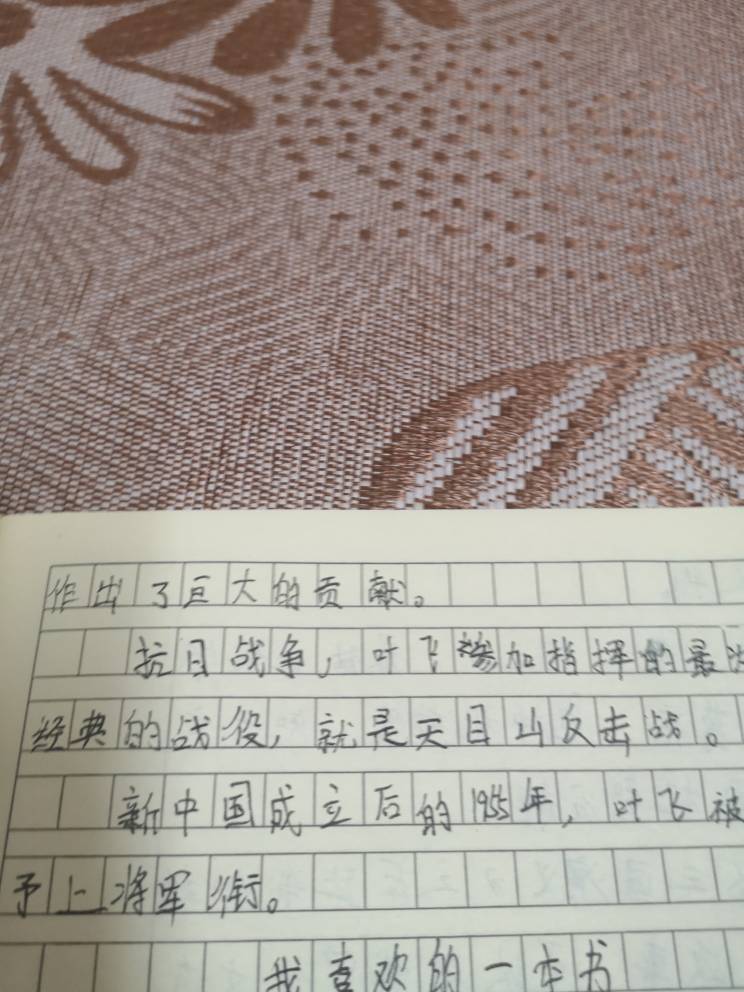 作出了巨大的贡献。
抗日战争,叶飞参加指挥的最
经典的战役,就是天目山反击战。
新中国成立后的1955年,叶飞被
予上将军衔。
我喜欢的一本书